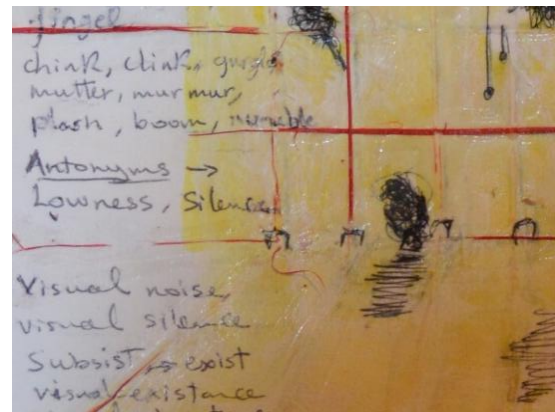 jingel
chink, clink, gurgle
mutter, murmur,
plash, boom, rumble
Antonyms →
Lowness, Silence
Visual noise,
visual silence
Subsist, exist
visual existance